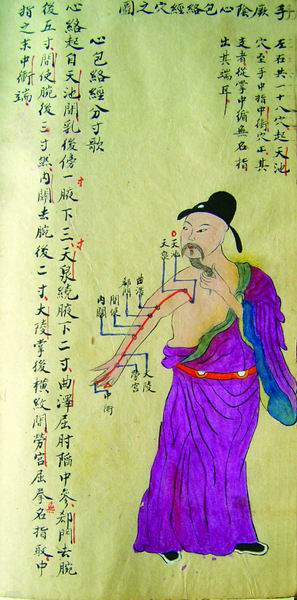 手厥陰心包絡經穴之圖
左右共一十八穴起天池
穴至手中指中衝穴止其
支者從掌中循無名指
出其端耳
心包絡經分寸歌
心絡起自天池間乳後傍一寸腋下三寸天泉繞腋下二寸曲澤屈肘陷中參郄門去腕
後五寸間使腕後三寸然內關去腕後二寸大陵掌後橫紋間勞宮屈拳無名指取中
指之末中衝端
天池
天泉
曲澤
郄門
間使
內關
大陵
勞宮
中衝